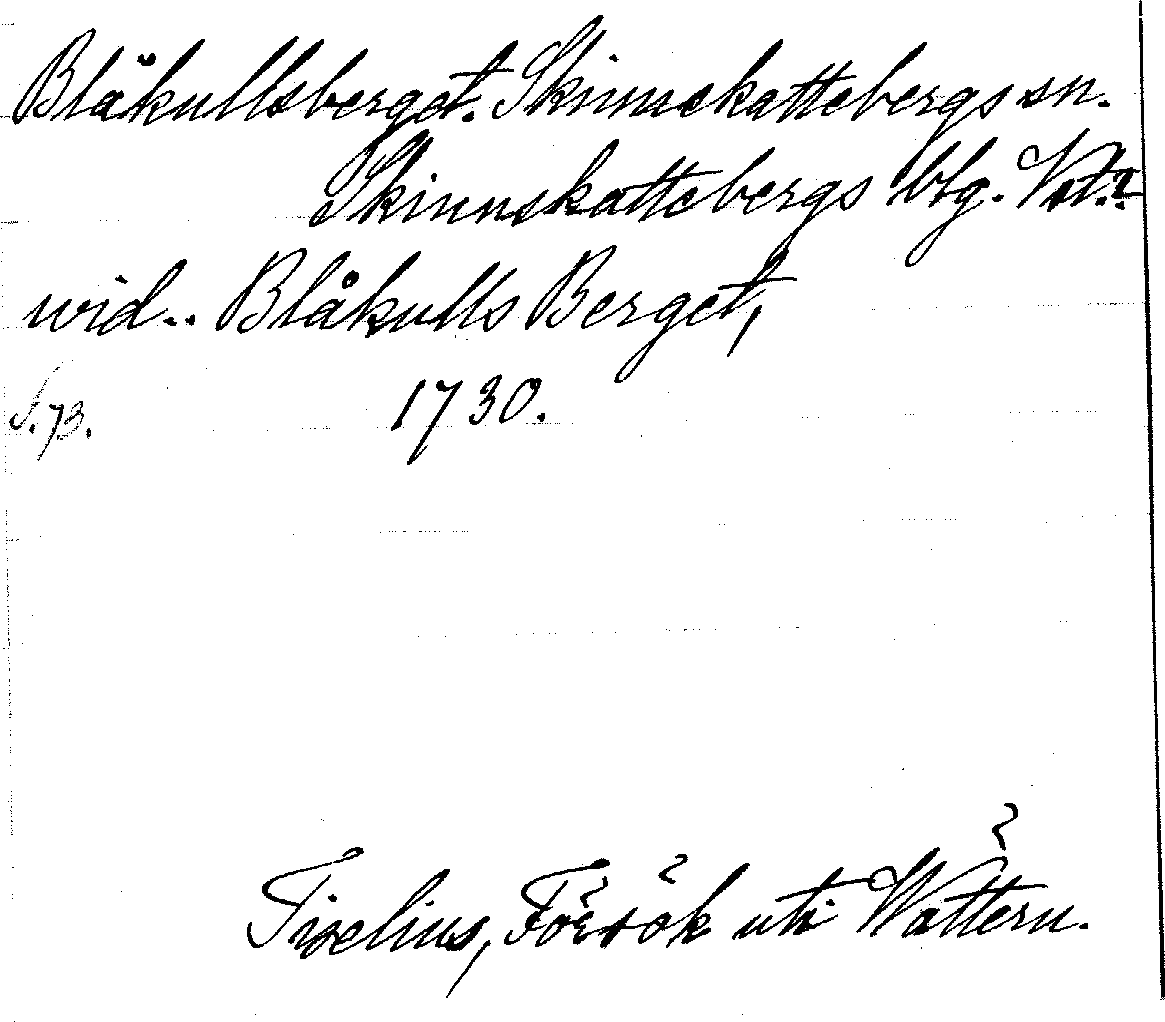 Blåkullsberget. Skinnskattebergs sn.
Skinnskattebergs blg. Vstm.
wid.. Blåkulls Berget,
S. 73. 1730.
Tiselius, Försök uti Wattern.